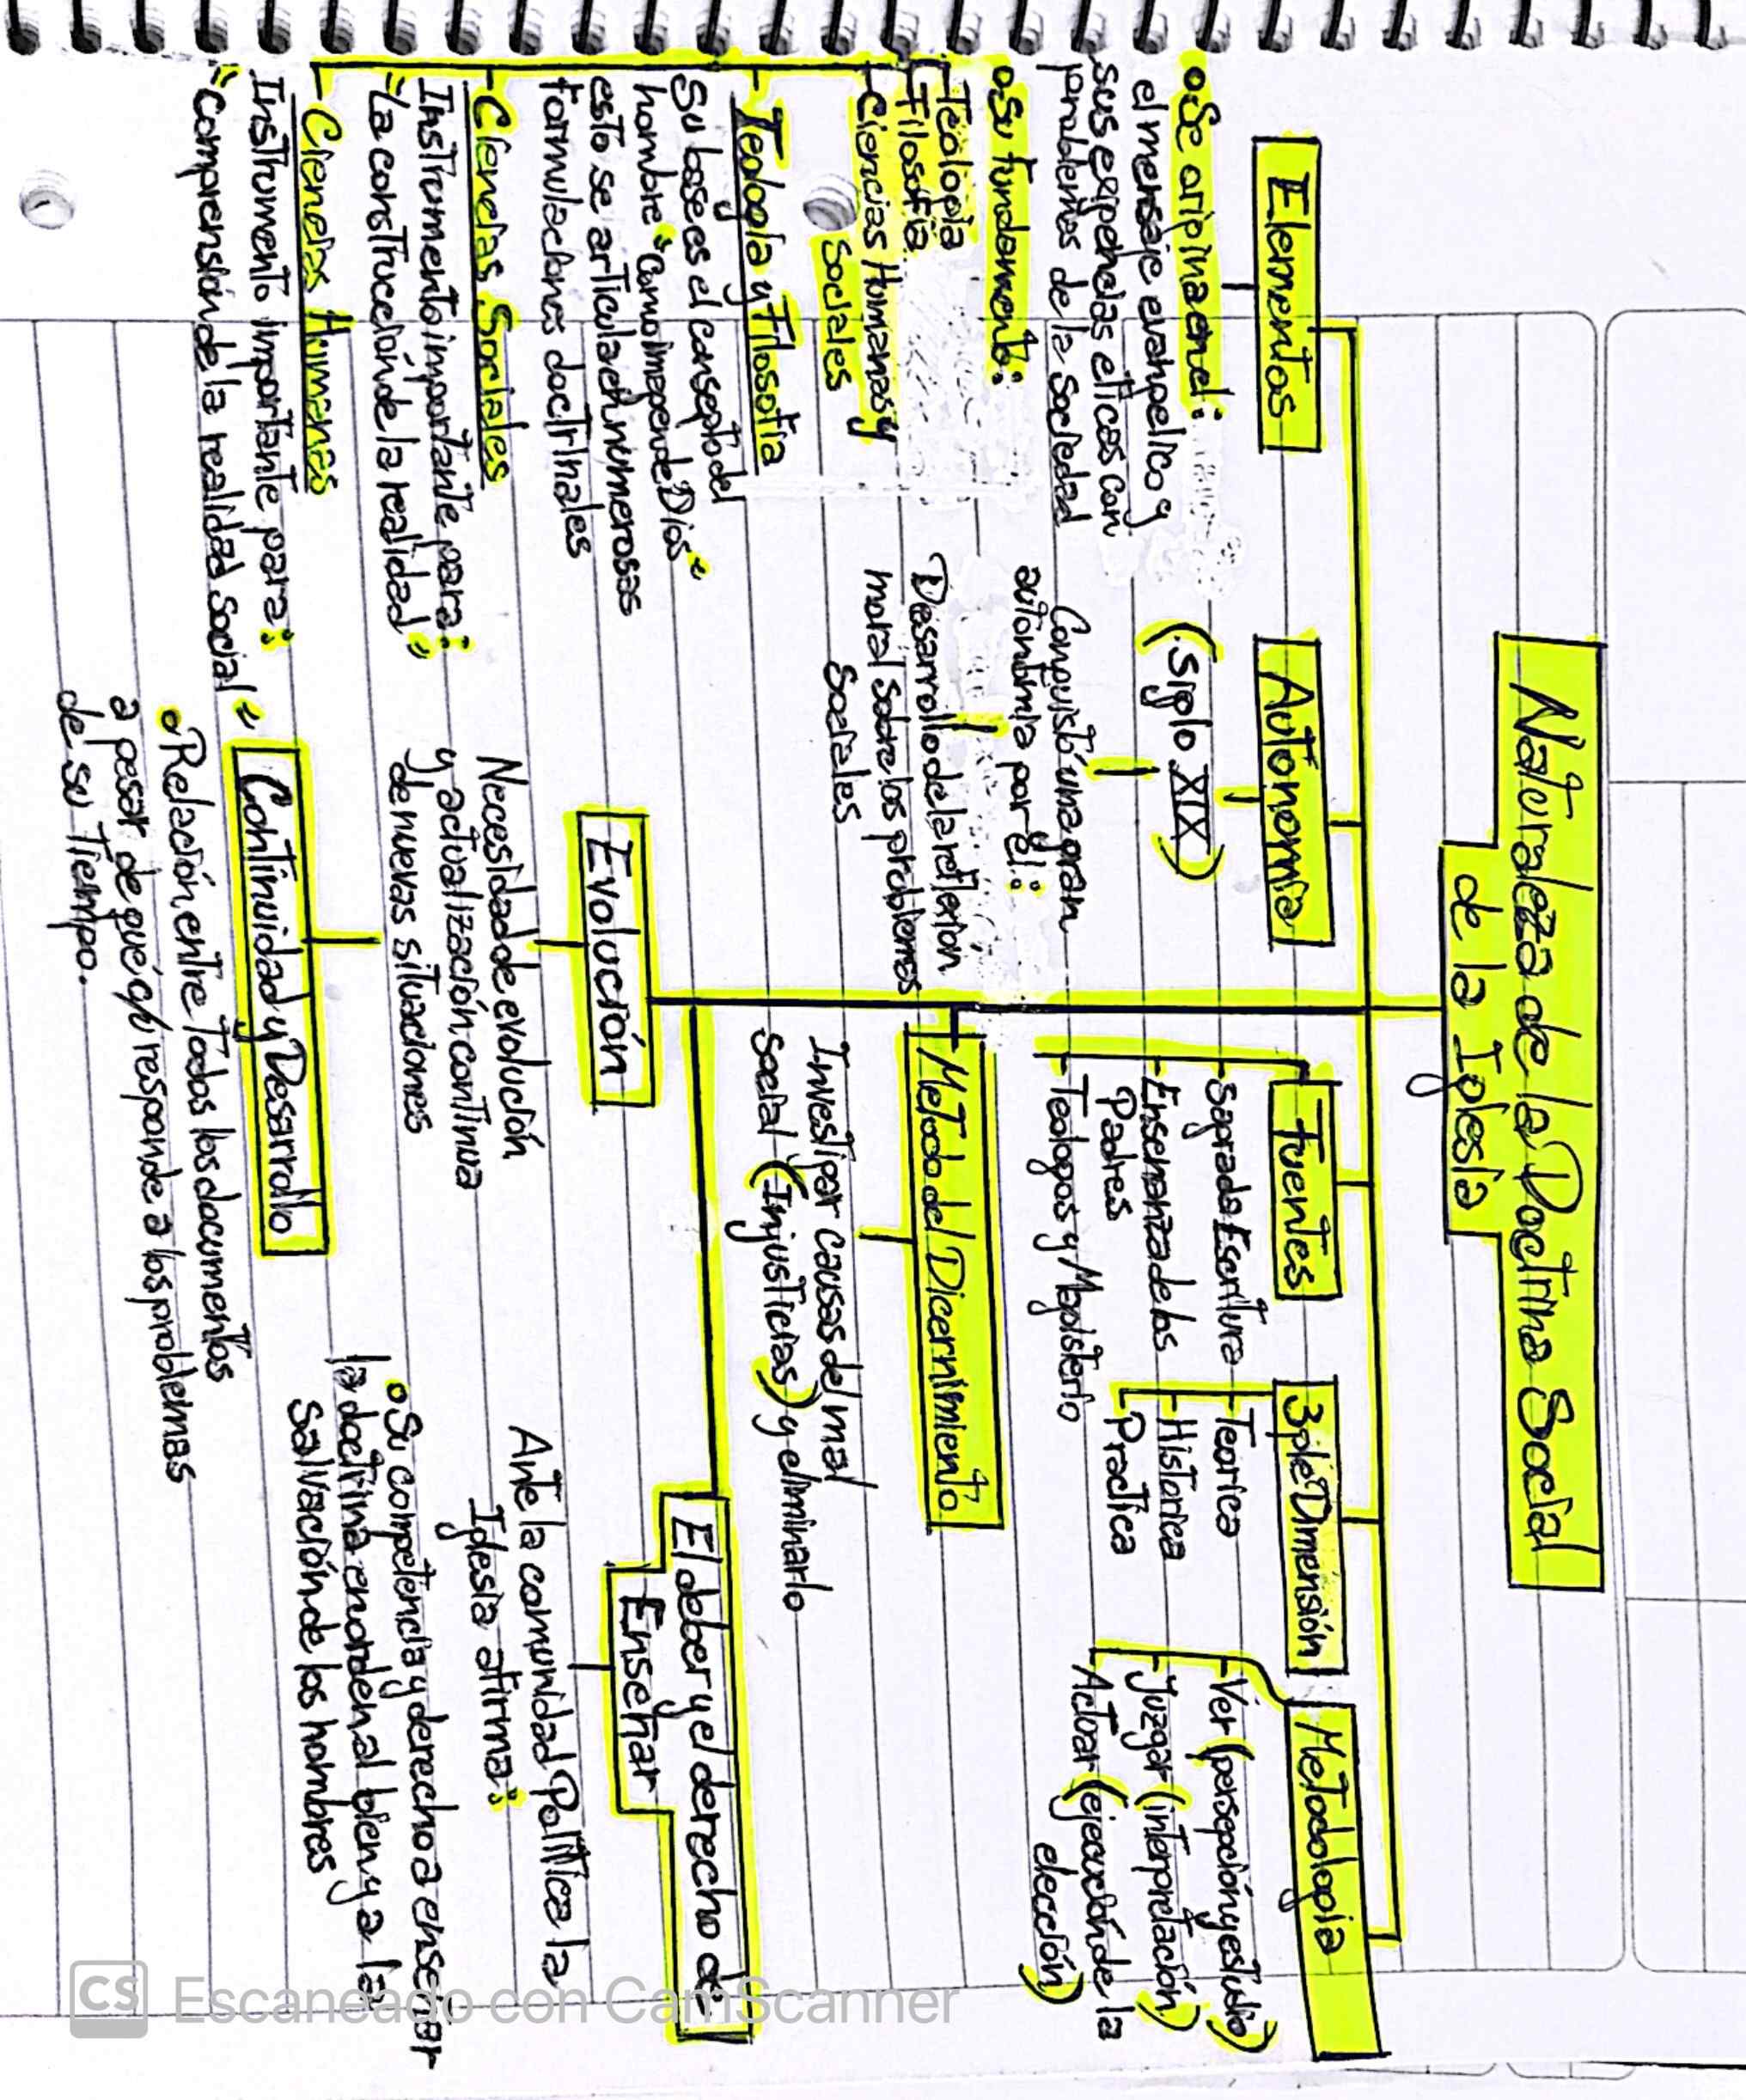 Naturaleza de la Doctrina Social
de la Iglesia
Elementos
• Se origina en el:
el mensaje evangelico y
sus experiencias eticas con
problemas de la sociedad
• Su fundamento:
Teología
Filosofía
Ciencias Humanas y
Sociales
Teología y Filosofía
Su base es el consepto del
hombre "Como imagen de Dios"
esto se articula en numerosas
formulaciones doctrinales
Ciencias Sociales
Instrumento importante para:
"La construcción de la realidad"
Ciencias Humanas
Instrumento importante para:
"Comprensión de la realidad Social"
Autonomía
(Siglo XIX)
Conquistó una gran
autonomía por el:
Desarrollo de la reflexión
moral sobre los problemas
Sociales
Fuentes
Sagrada Escritura
Ensenanza de los
Padres
Teologos y Magisterio
3ple Dimensión
Teorica
Historica
Practica
Metodología
Ver (persepción y estudio)
Juzgar (interpretación)
Actuar (ejecución de la
elección)
Metodo del Dicernimiento
Investigar causas del mal
Social (Injusticias) y eliminarlo
Evolución
Necesidad de evolución
y actualización continua
de nuevas situaciones
Continuidad y Desarrollo
• Relación entre todos los documentos
a pesar de que c/u responde a los problemas
de su tiempo.
El deber y el derecho de
Enseñar
Ante la comunidad Politica la
Iglesia afirma:
• Su competencia y derecho a enseñar
la doctrina en orden al bien y a la
Salvación de los hombres
CS Escaneado con CamScanner